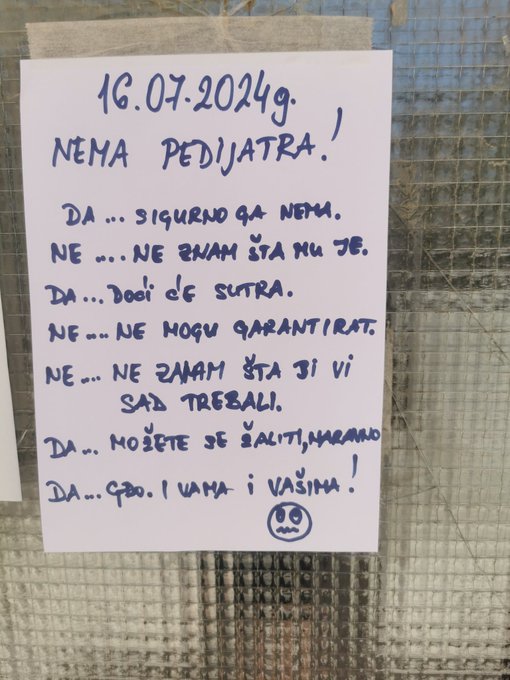 16.07.2024g.
NEMA PEDIJATRA!
DA... SIGURNO GA NEMA.
NE .... NE ZNAM ŠTA MU JE.
DA... DOĆI ĆE SUTRA.
NE.... NE MOGU GARANTIRAT.
NE.... NE ZNAM ŠTA BI VI
SAD TREBALI.
DA... MOŽETE SE ŽALITI, NARAVNO
DA... GĐO. I VAMA I VAŠIMA!